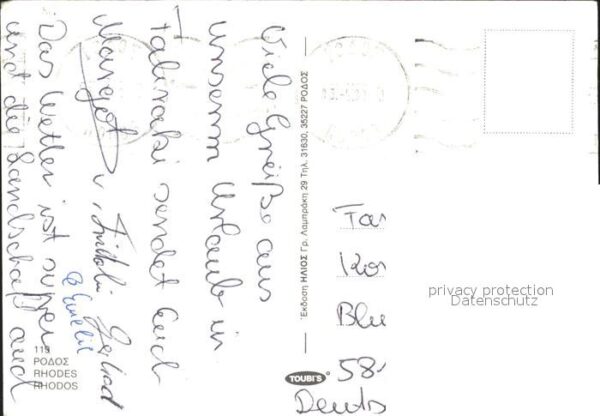 Viele Grüße aus
unserem Urlaub in
Faliraki sendet Euch
Margot
Das Wetter ist super
und die Landschaft auch
119
ΡΟΔΟΣ
RHODES
RHODOS
Έκδοση ΗΛΙΟΣ Γρ. Λαμπράκη 29 Τηλ. 31630, 35227 ΡΟΔΟΣ
TOUBI'S
Blu
58
Deuts
privacy protection
Datenschutz